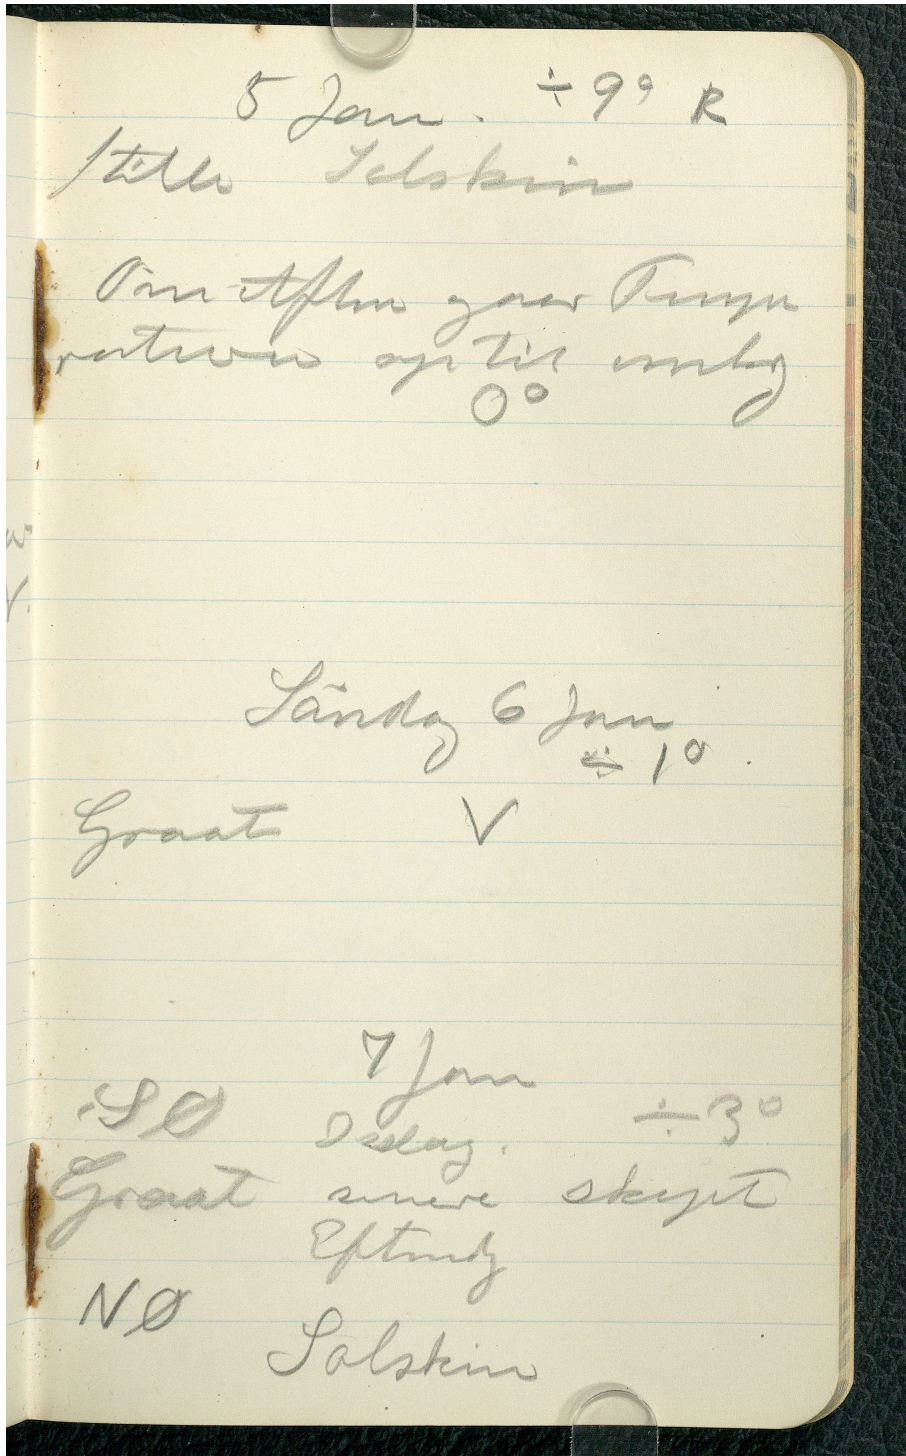 5 Jan. ÷ 9° R
stille Solskin
Om Aften gaar Tempe
raturen op til omkg
0°
Søndag 6 Jan
÷ 1°
Graat V
7 Jan
SØ ÷ 3°
Isslag.
Graat senere skyet
Eftmdg
NØ
Solskin